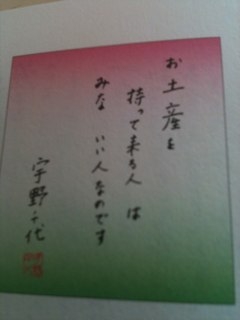 お土産を
持って来る人 は
みな いい人なのです
宇野千代